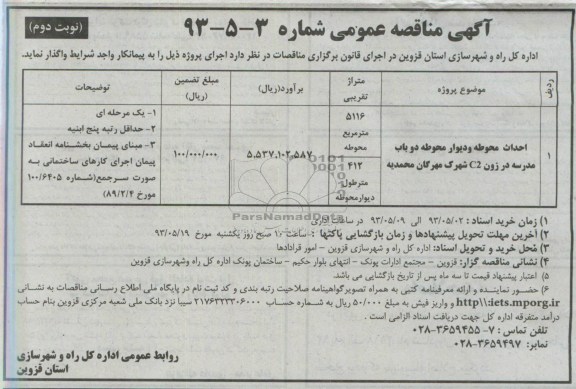 آگهی مناقصه عمومی شماره ۳-۵-۹۳
(نوبت دوم)
اداره کل راه و شهرسازی استان قزوین در اجرای قانون برگزاری مناقصات در نظر دارد اجرای پروژه ذیل را به پیمانکار واجد شرایط واگذار نماید.
ردیف
موضوع پروژه
متراژ تقریبی
برآورد(ریال)
مبلغ تضمین (ریال)
توضیحات
۱
احداث محوطه ودیوار محوطه دو باب
مدرسه در زون C2 شهرک مهرگان محمدیه
۵۱۱۶
مترمربع
محوطه
۴۱۲
مترطول
دیوارمحوطه
۵,۵۳۷,۱۰۲,۵۸۷
۱۰۰/۰۰۰/۰۰۰
۱- یک مرحله ای
۲- حداقل رتبه پنج ابنیه
۳- مبنای پیمان بخشنامه انعقاد
پیمان اجرای کارهای ساختمانی به
صورت سرجمع(شماره ۱۰۰/۶۴۰۵
مورخ ۸۹/۲/۴)
ParsNamadData
۱) زمان خرید اسناد: ۹۳/۰۵/۰۲ الی ۹۳/۰۵/۰۹ در ساعات اداری
۲) آخرین مهلت تحویل پیشنهادها و زمان بازگشایی پاکتها : ساعت ۱۰ صبح روز یکشنبه مورخ ۹۳/۰۵/۱۹
۳) محل خرید و تحویل اسناد: اداره کل راه و شهرسازی قزوین - امور قرادادها
۴) نشانی مناقصه گزار: قزوین - مجتمع ادارات پونک - انتهای بلوار حکیم - ساختمان پونک اداره کل راه وشهرسازی قزوین
۵) اعتبار پیشنهاد قیمت تا سه ماه پس از تاریخ بازگشایی می باشد.
۶) حضور نماینده و ارائه معرفینامه کتبی به همراه تصویرگواهینامه صلاحیت رتبه بندی و کد ثبت نام در پایگاه ملی اطلاع رسانی مناقصات به نشانی
http\\:iets.mporg.ir و واریز فیش به مبلغ ۵۰/۰۰۰ ریال به شماره حساب ۲۱۷۶۳۲۳۰۶۰۰۰ سیبا نزد بانک ملی شعبه مرکزی قزوین بنام حساب
درآمد متفرقه اداره کل جهت دریافت اسناد الزامی است .
تلفن تماس : ۷-۳۶۵۹۴۵۵-۰۲۸
نمابر: ۳۶۵۹۴۹۷-۰۲۸
روابط عمومی اداره کل راه و شهرسازی
استان قزوین